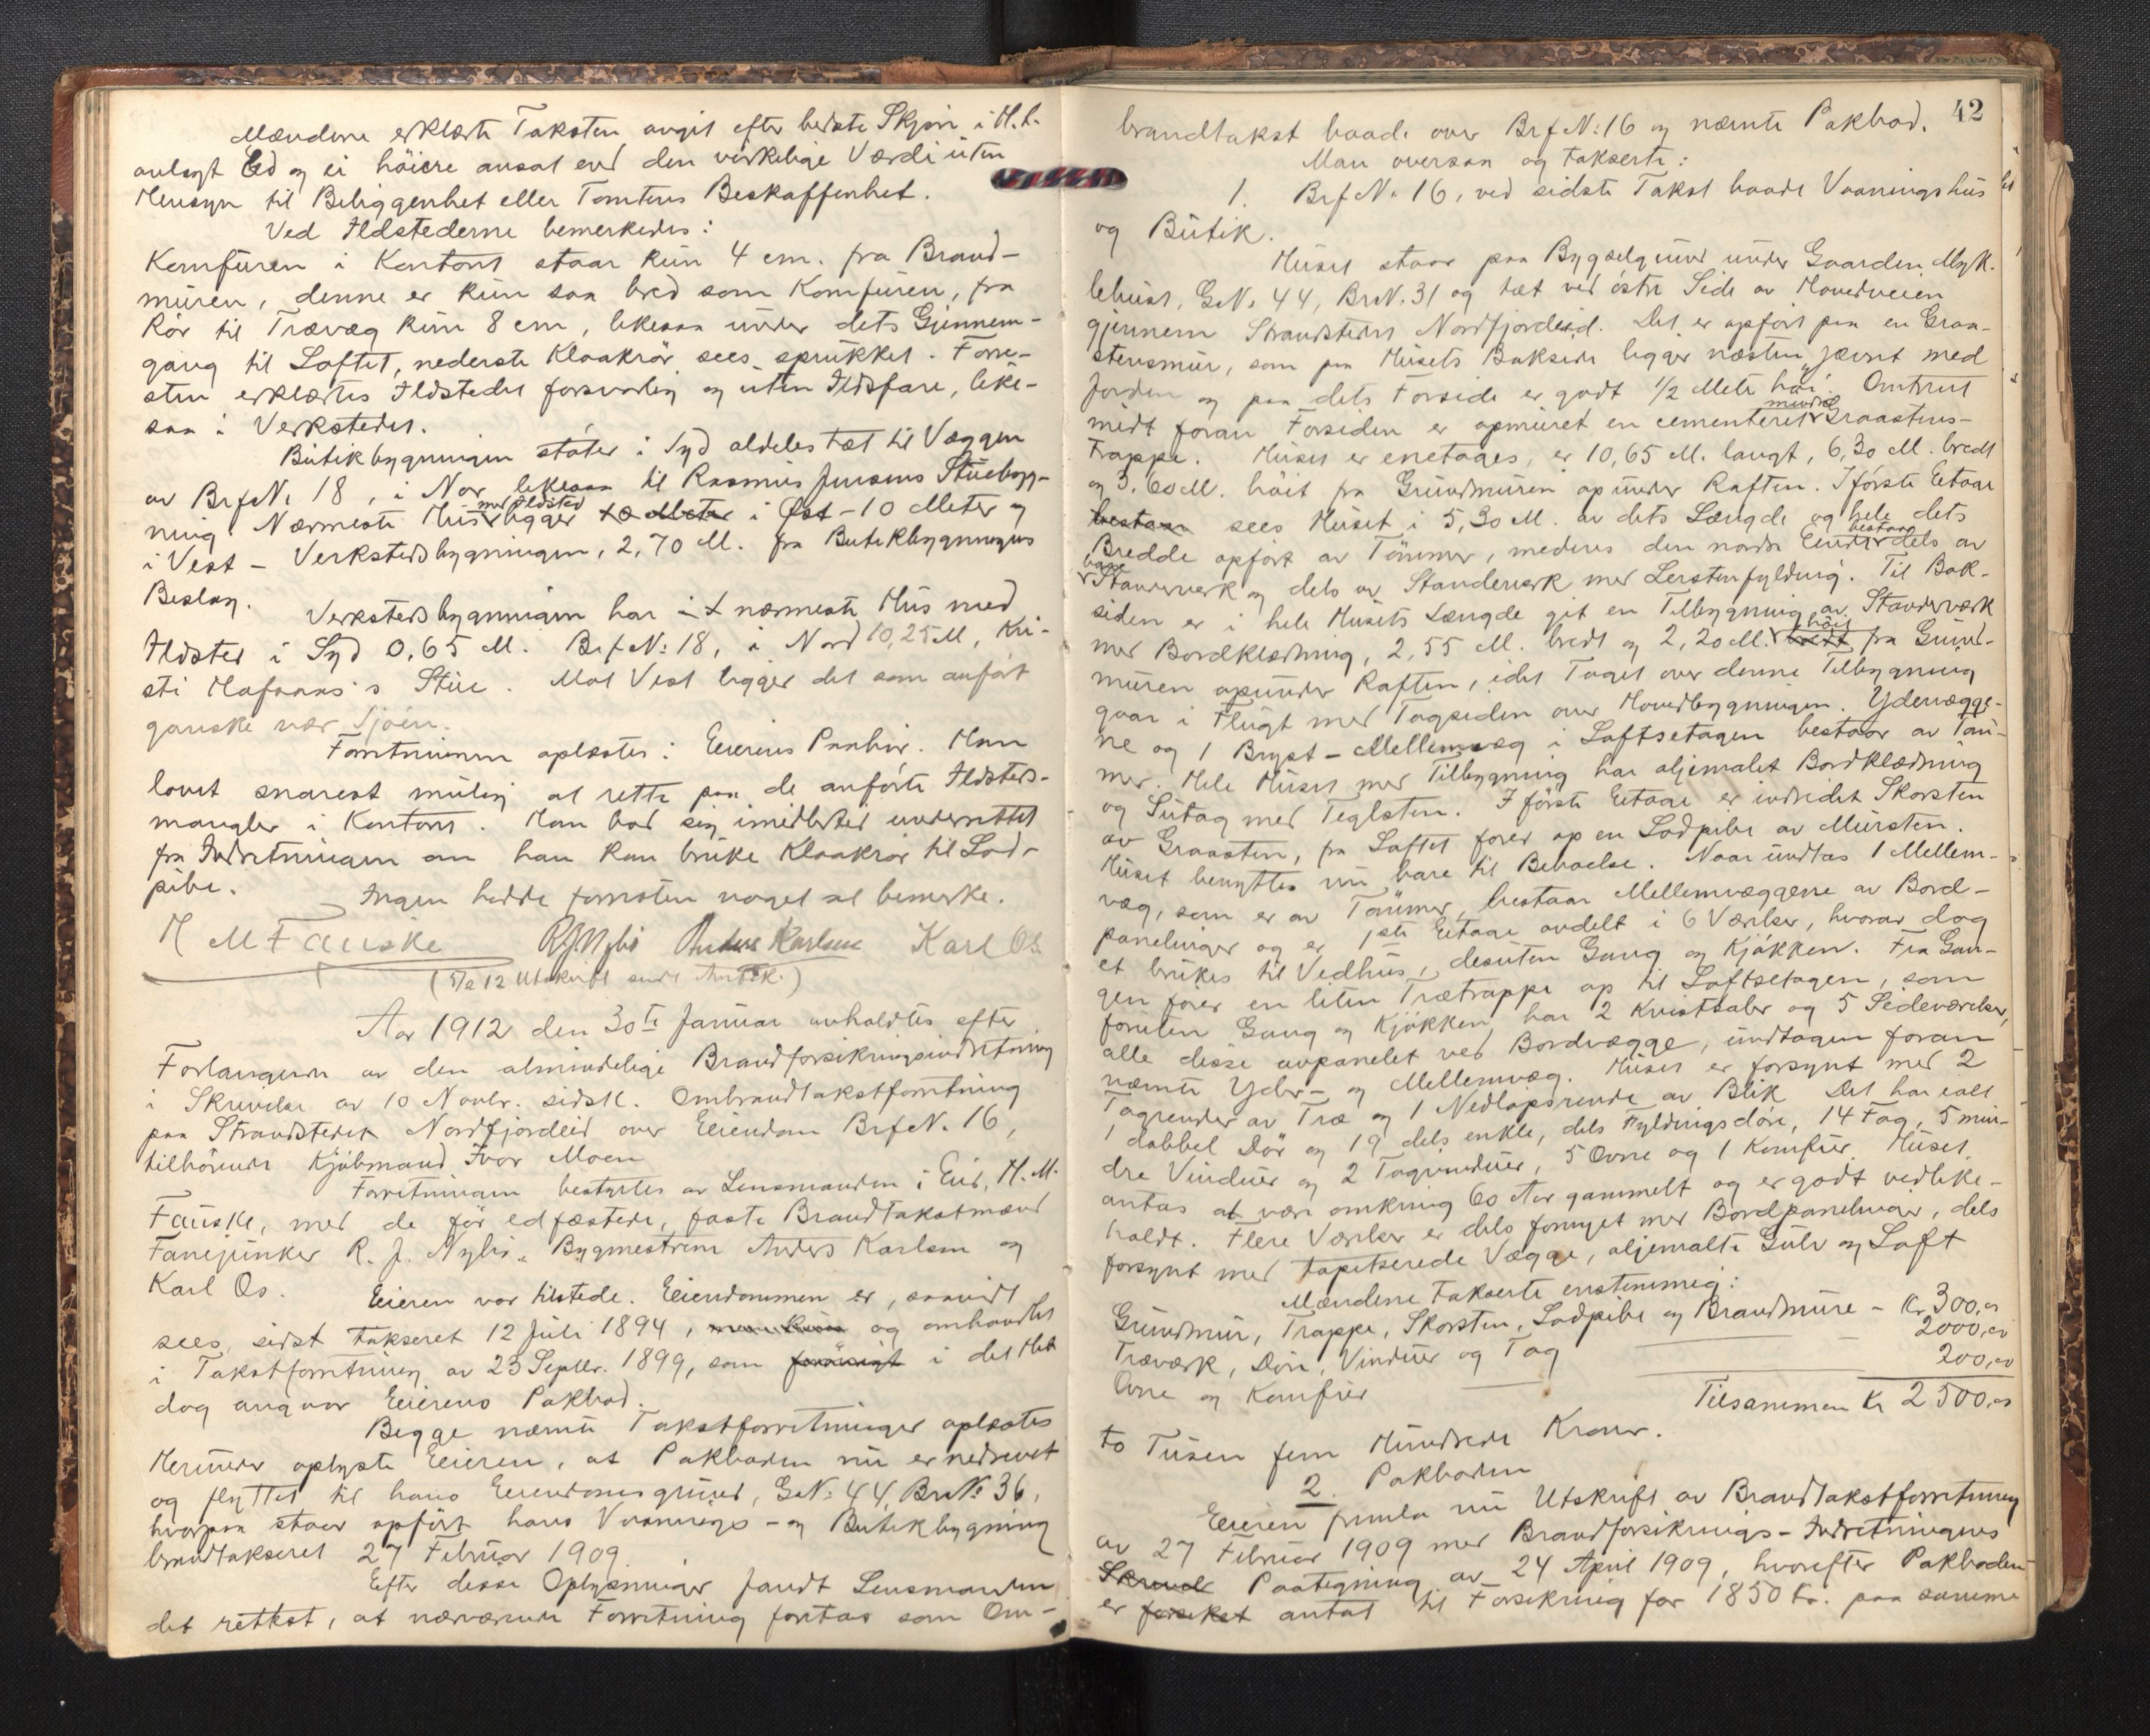 Mændene erklærte Taksten avgit efter bedste Skjøn i H. t.
avlagt Ed og ei høiere ansat end den virkelige Værdi uten
Hensyn til Beliggenhet eller Tomtens Beskaffenhet.
Ved Ildstederne bemerkedes:
Komfuren i Kontoret staar kun 4 cm. fra Brand-
muren, denne er kun saa bred som Komfuren, fra
Rør til Trævæg kun 8 cm, likesaa under dets Gjennem-
gang til Loftet, nederste Kloakrør sees sprukket. Forre-
sten erklærtes Ildstedet forsvarlig og uten Ildsfare, like-
saa i Verkstedet.
Butikbygningen støter i Syd aldeles tæt til Væggen
av Brf No 18, i Nor likesaa til Rasmus Jensens Stuebygg-
ning. Nærmeste Hus med Ildsted ligger to Meter i Øst - 10 Meter og
i Vest - Verkstedsbygningen, 2,70 M. fra Butikbygningens
Beslag.
Verkstedsbygningen har i nærmeste Hus med
Ildsted i Syd 0,65 M. Brf No: 18, i Nord 10,25 M, Kri-
sti Hafsaas's Stue. Mot Vest ligger det som anført
ganske nær Sjøen.
Forretningen oplæstes i Eierens Paahør. Han
lovet snarest mulig at rette paa de anførte Ildsteds-
mangler i Kontoret. Han bad sig imidlertid underrettet
fra Indretningen om han kan bruke Kloakrør til Lod-
pibe.
Ingen hadde forresten noget at bemerke.
H M Fauske R J Nylis Anders Karlsen Karl Os
(5/2 12 Utskrift sendt)
Aar 1912 den 30te Januar avholdtes efter
Forlangende av den almindelige Brandforsikringsindretning
i Skrivelse av 10 Novbr. sidstl. Ombrandtakstforretning
paa Strandstedet Nordfjordeid over Eiendom Brf No. 16,
tilhörende Kjøbmand Ivar Moen
Forretningen bestyrtes av Lensmanden i Eid, H. M.
Fauske, med de før edfæstede, faste Brandtakstmænd
Fanejunker R. J. Nylis, Bygmestrene Anders Karlsen og
Karl Os.
Eieren var tilstede. Eiendommen er, saavidt
sees, sidst takseret 12 Juli 1894, og omhandlet
i Takstforretning av 23 Septbr. 1899, som forøvrigt i det Hele
dog angaar Eierens Pakbod.
Begge nævnte Takstforretninger oplæstes
Herunder oplyste Eieren, at Pakboden nu er nedrevet
og flyttet til hans Eiendomsgrund, G.No. 44, Br.No. 36,
hvorpaa staar opført hans Vaanings- og Butikbygning
brandtakseret 27 Februar 1909.
Efter disse Oplysninger fandt Lensmanden
det rettest, at nærværende Forretning foretas som Om-
42
brandtakst baade over Brf No: 16 og nævnte Pakbod.
Man oversaa og takserte:
1. Brf No. 16, ved sidste Takst baade Vaaningshus
og Butik.
Huset staar paa Bygselgrund under Gaarden Myk-
lebust, G.No. 44, Br.No. 31 og tæt ved østre Side av Hovedveien
gjennem Strandstedet Nordfjordeid. Det er opført paa en Graa-
stensmur, som paa Husets Bakside ligger næsten jævnt med
Jorden og paa dets Forside er godt 1/2 Meter høi. Omtrent
midt foran Forsiden er opmuret en cementeret mindre Graastens-
Trappe. Huset er enetages, er 10,65 M. langt, 6,30 M. bredt
og 3,60 M. høit fra Grundmuren op under Raften. I første Etage
bestaar sees Huset i 5,30 M. av dets Længde og hele dets
Bredde opført av Tømmer, medens den nordre Ende bestaar dels av
bare Standerverk og dels av Standerverk med Lerstenfylding. Til Bak-
siden er i hele Husets Længde git en Tilbygning av Standerværk
med Bordklædning, 2,55 M. bredt og 2,20 M. høit bredt fra Grund-
muren opunder Raften, idet Taget over denne Tilbygning
gaar i Flugt med Tagsiden over Hovedbygningen. Ydervægge-
ne og 1 Bryst-Mellemvæg i Loftsetagen bestaar av Tøm-
mer. Hele Huset med Tilbygning har oljemalet Bordklædning
og Sutag med Teglsten. I første Etage er indredet Skorsten
av Graasten, fra Loftet fører op en Lodpibe av Mursten.
Huset benyttes nu bare til Beboelse. Naar undtas 1 Mellem-
væg, som er av Tømmer, bestaar Mellemvæggene av Bord-
panelinger og er 1ste Etage avdelt i 6 Værelser, hvorav dog
et brukes til Vedhus, desuten Gang og Kjøkken. Fra Gan-
gen fører en liten Trætrappe op til Loftsetagen, som
foruten Gang og Kjøkken, har 2 Kvistsaler og 5 Sideværelser,
alle disse avpanelet ved Bordvægge, undtagen foran
nævnte Yder- og Mellemvæg. Huset er forsynt med 2
Tagrender av Træ og 1 Nedløpsrende av Blik. Det har ialt
1 dobbel Dør og 19 dels enkle, dels Fyldingsdøre, 14 Fag, 5 min-
dre Vinduer og 2 Tagvinduer, 5 Ovne og 1 Komfur. Huset
antas at være omkring 60 Aar gammelt og er godt vedlike-
holdt. Flere Værelser er dels fornyet med Bordpanelinger, dels
forsynt med tapetserede Vægge, oljemalte Gulv og Loft
Mændene takserte enstemmig:
Grundmur, Trappe, Skorsten, Lodpibe og Brandmure - Kr. 300,00
Træværk, Døre, Vinduer og Tag - 2000,00
Ovne og Komfur - 200,00
Tilsammen Kr 2500,00
to Tusen fem Hundrede Kroner.
2. Pakboden
Eieren fremla nu Utskrift av Brandtakstforretning
av 27 Februar 1909 med Brandforsikrings-Indretningens
Paategning av 24 April 1909, hvorefter Pakboden
er forsikret antat til Forsikring for 1850 Kr. paa samme